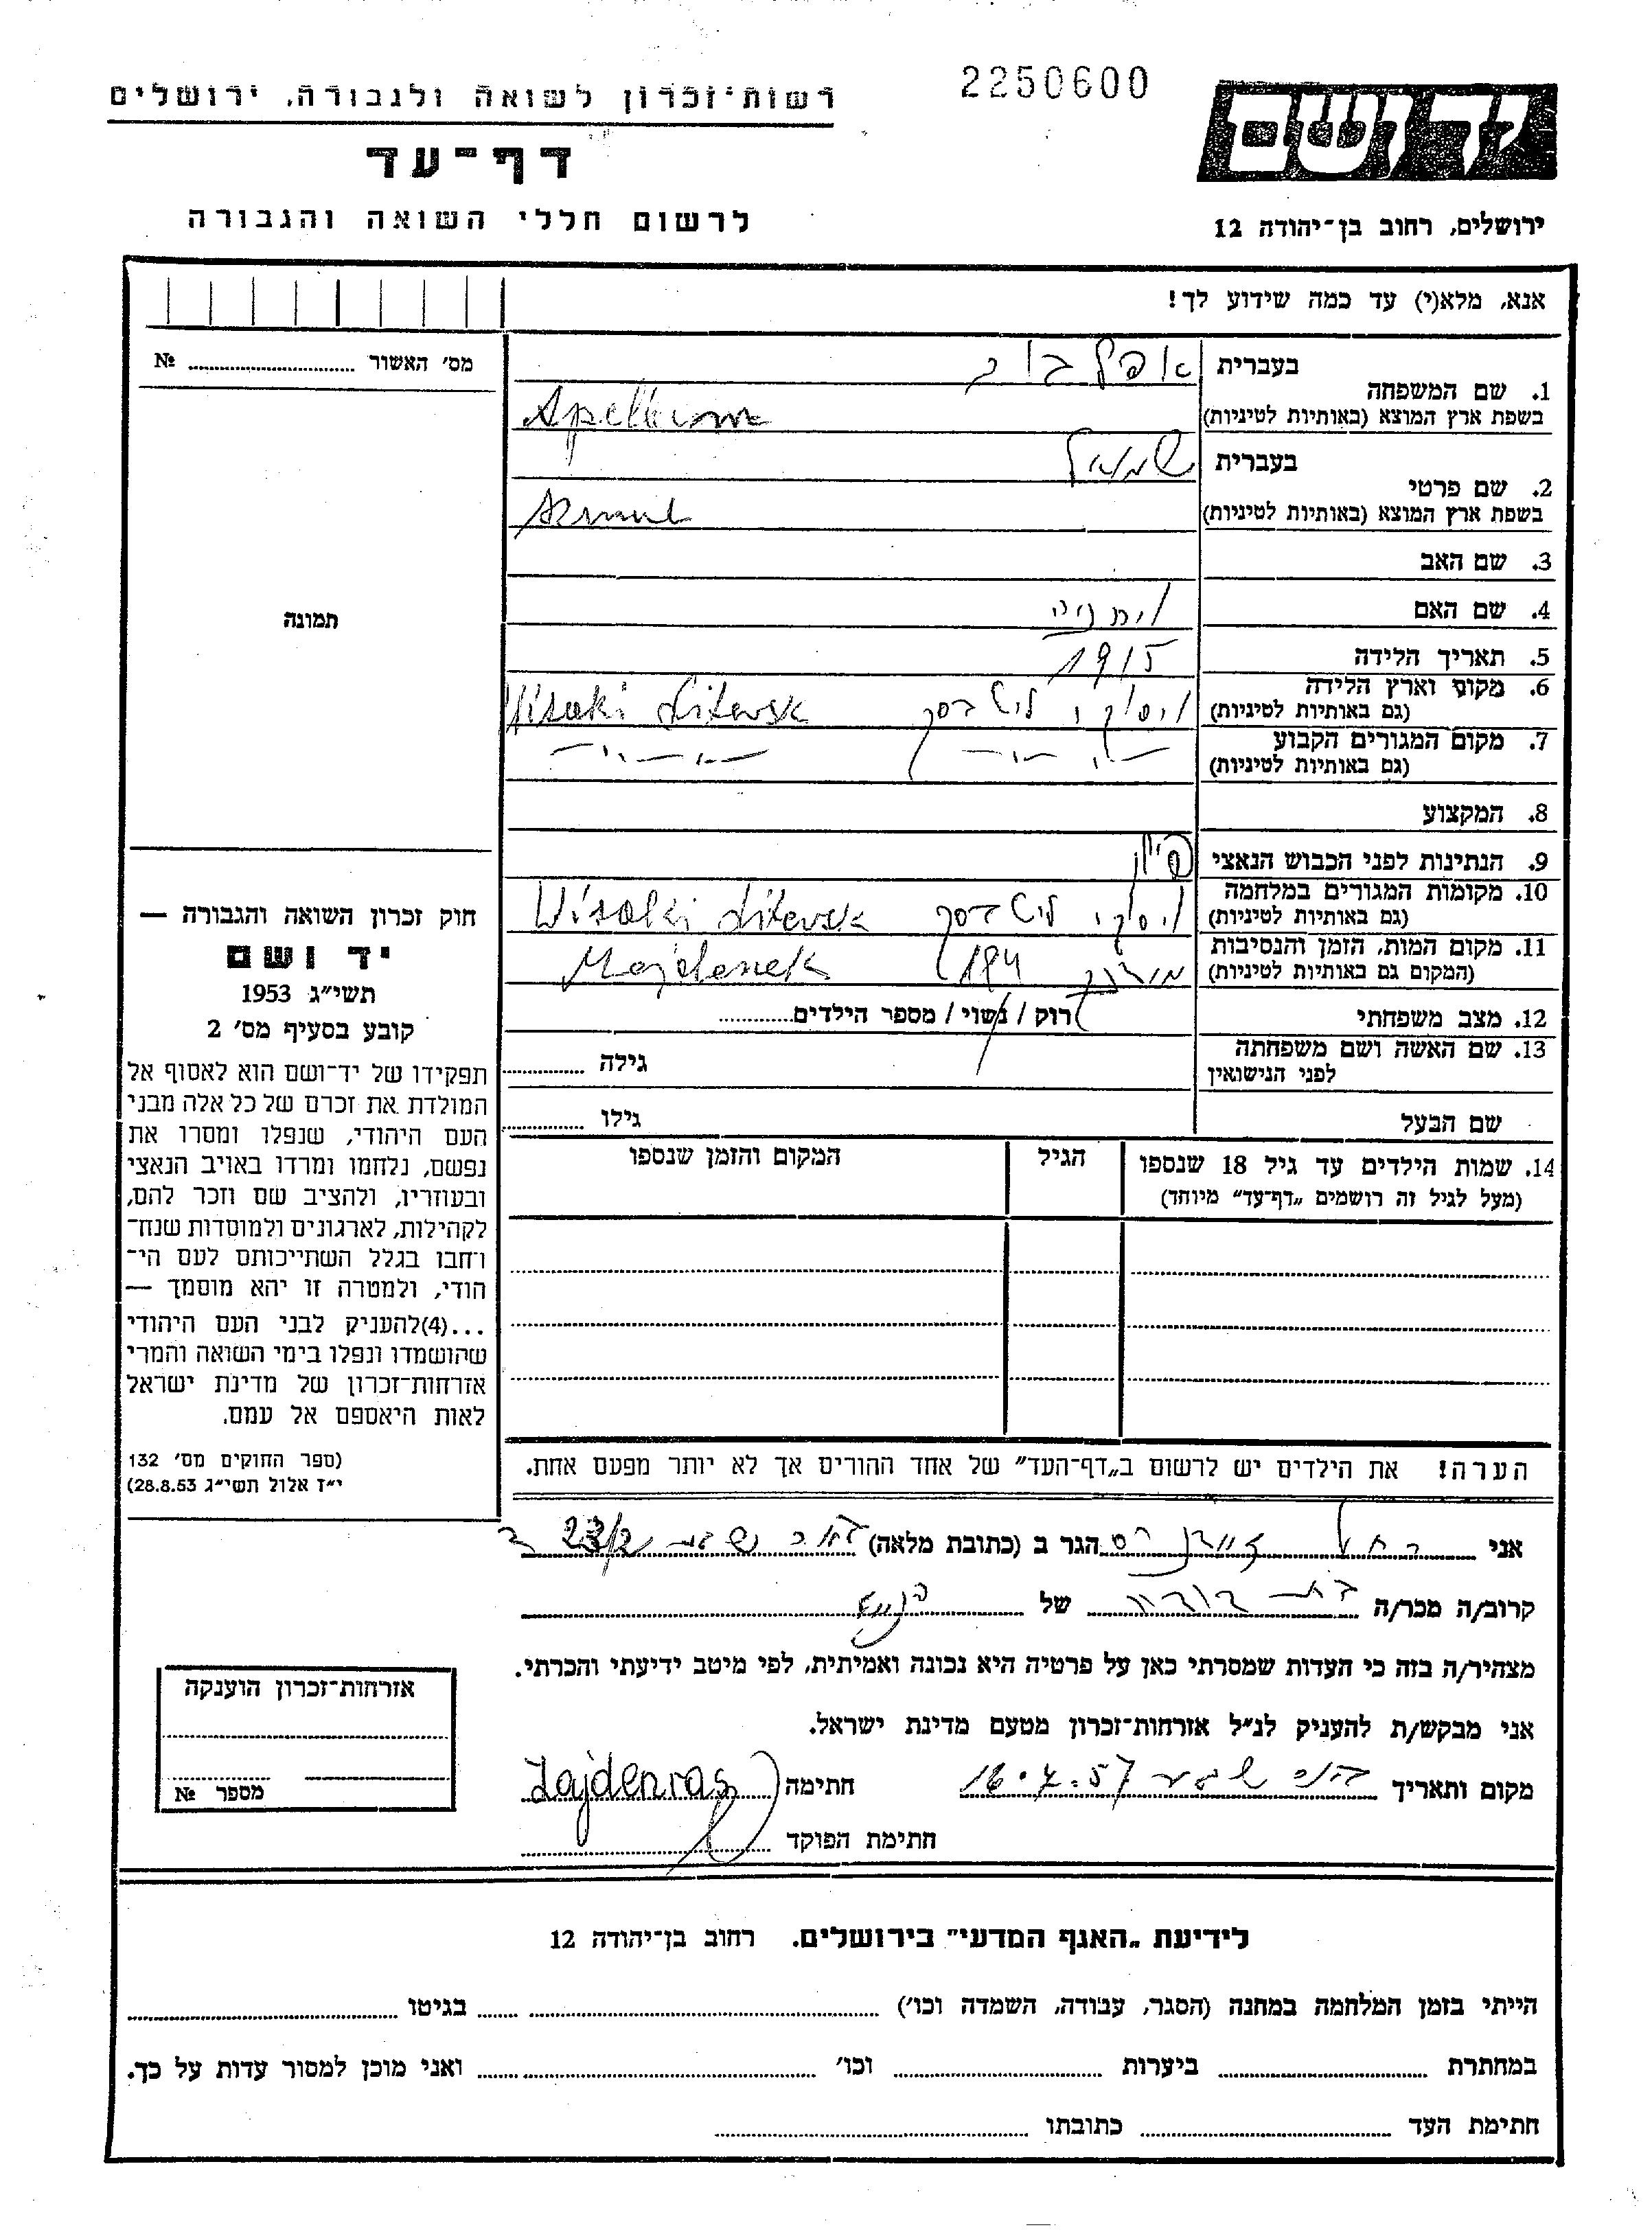 2250600
יד ושם
רשות־זכרון לשואה ולגבורה, ירושלים
דף־עד
ירושלים, רחוב בן־יהודה 12
לרשום חללי השואה והגבורה
אנא, מלא(י) עד כמה שידוע לך!
מס׳ האשור № ........
תמונה
בעברית
1. שם המשפחה
בשפת ארץ המוצא (באותיות לטיניות)
Apelbum
בעברית שמואל
2. שם פרטי
בשפת ארץ המוצא (באותיות לטיניות)
3. שם האב
4. שם האם
5. תאריך הלידה 1915
6. מקום וארץ הלידה
(גם באותיות לטיניות) ויסוקי ליטבסק Wisoki Litewsk
7. מקום המגורים הקבוע
(גם באותיות לטיניות)
8. המקצוע
9. הנתינות לפני הכבוש הנאצי פולין
10. מקומות המגורים במלחמה
(גם באותיות לטיניות) ויסוקי ליטבסק Wisoki Litewsk
11. מקום המות, הזמן והנסיבות
(המקום גם באותיות לטיניות) Majdanek
12. מצב משפחתי רוק / נשוי / מספר הילדים........
13. שם האשה ושם משפחתה
לפני הנישואין
גילה ........
שם הבעל גילו ........
14. שמות הילדים עד גיל 18 שנספו הגיל המקום והזמן שנספו
(מעל לגיל זה רושמים „דף־עד״ מיוחד)
הערה! את הילדים יש לרשום ב„דף־העד״ של אחד ההורים אך לא יותר מפעם אחת.
חוק זכרון השואה והגבורה —
יד ושם
תשי״ג 1953
קובע בסעיף מס׳ 2
תפקידו של יד־ושם הוא לאסוף אל
המולדת את זכרם של כל אלה מבני
העם היהודי, שנפלו ומסרו את
נפשם, נלחמו ומרדו באויב הנאצי
ובעוזריו, ולהציב שם וזכר להם,
לקהילות, לארגונים ולמוסדות שנח־
רבו בגלל השתייכותם לעם הי־
הודי, ולמטרה זו יהא מוסמך —
...(4)להעניק לבני העם היהודי
שהושמדו ונפלו בימי השואה והמרי
אזרחות־זכרון של מדינת ישראל
לאות היאספם אל עמם.
(ספר החוקים מס׳ 132
י״ז אלול תשי״ג 28.8.53)
אני רחל הגר ב (כתובת מלאה)
קרוב/ה מכר/ה בת דודה של
מצהיר/ה בזה כי העדות שמסרתי כאן על פרטיה היא נכונה ואמיתית, לפי מיטב ידיעתי והכרתי.
אני מבקש/ת להעניק לנ״ל אזרחות־זכרון מטעם מדינת ישראל.
מקום ותאריך 16.4.57 חתימה Zajdenras
חתימת הפוקד
אזרחות־זכרון הוענקה
מספר №
לידיעת „האגף המדעי״ בירושלים, רחוב בן־יהודה 12
הייתי בזמן המלחמה במחנה (הסגר, עבודה, השמדה וכו׳) ........ בגיטו ........
במחתרת ........ ביערות ........ וכו׳ ........ ואני מוכן למסור עדות על כך.
חתימת העד ........ כתובתו ........